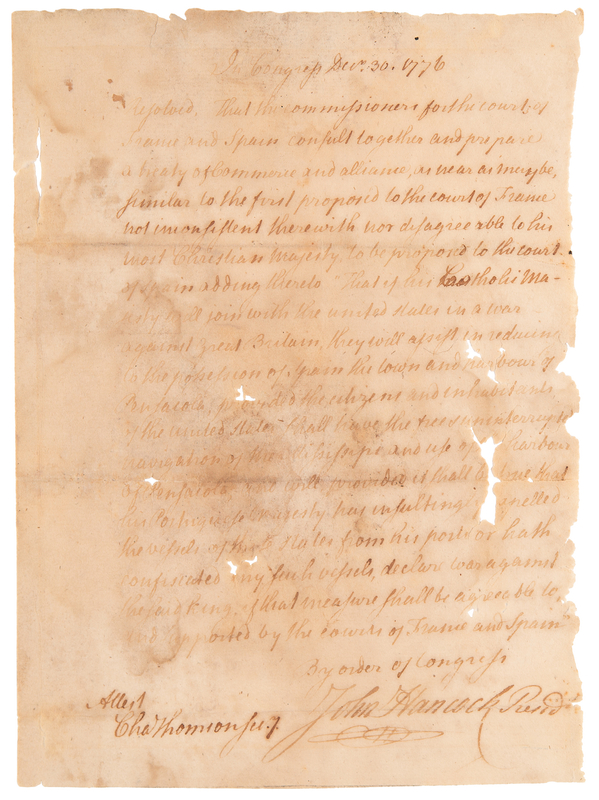 In Congress Decr. 30. 1776
resolved. That the commissioners for the courts of
France and Spain consult together and prepare
a treaty of Commerce and alliance, as near as may be,
similar to the first proposed to the court of France
not inconsistent therewith nor disagreeable to his
most Christian Majesty, to be proposed to the court
of Spain adding thereto "That if his Catholic Ma-
jesty will join with the united states in a war
against Great Britain, they will assist in reducing
to the possession of Spain the town and harbour of
Pensacola, provided the citizens and inhabitants
of the united states shall have the free & uninterrupted
navigation of the Missisippi and use of harbour
of Pensacola and will provided it shall be true that
his Portuguese Majesty has insultingly expelled
the vessels of these states from his ports or hath
confiscated any such vessels, declare war against
the said king, if that measure shall be agreeable to
and supported by the courts of France and Spain"
By order of Congress
Attest
John Hancock Presidt
Cha Thomson secy.